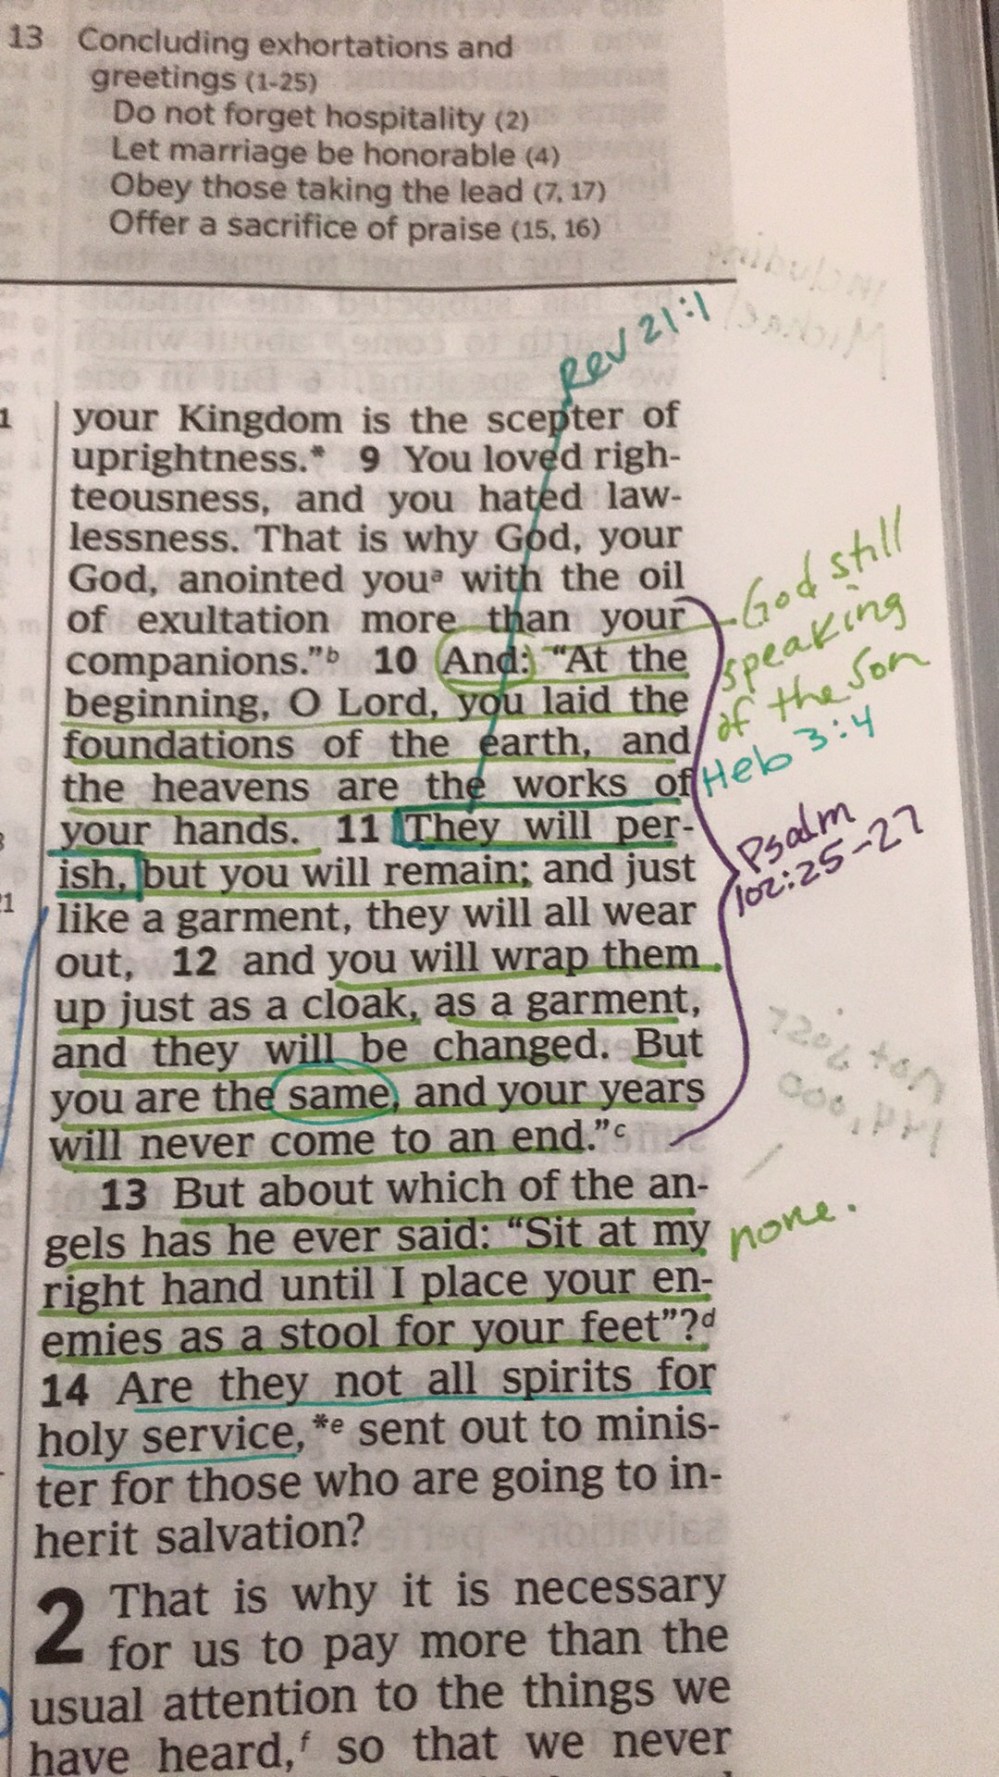 13 Concluding exhortations and
greetings (1-25)
Do not forget hospitality (2)
Let marriage be honorable (4)
Obey those taking the lead (7, 17)
Offer a sacrifice of praise (15, 16)
Rev 21:1
your Kingdom is the scepter of
uprightness.* 9 You loved righ-
teousness, and you hated law-
lessness. That is why God, your
God, anointed youᵃ with the oil
of exultation more than your
companions.”ᵇ 10 And: “At the
beginning, O Lord, you laid the
foundations of the earth, and
the heavens are the works of
your hands. 11 They will per-
ish, but you will remain; and just
like a garment, they will all wear
out, 12 and you will wrap them
up just as a cloak, as a garment,
and they will be changed. But
you are the same, and your years
will never come to an end.”ᶜ
God still
speaking
of the Son
Heb 3:4
Psalm
102:25-27
13 But about which of the an-
gels has he ever said: “Sit at my
right hand until I place your en-
emies as a stool for your feet”?ᵈ
none.
14 Are they not all spirits for
holy service,*ᵉ sent out to minis-
ter for those who are going to in-
herit salvation?
2 That is why it is necessary
for us to pay more than the
usual attention to the things we
have heard,ᶠ so that we never
including
Michael!
not just
144,000